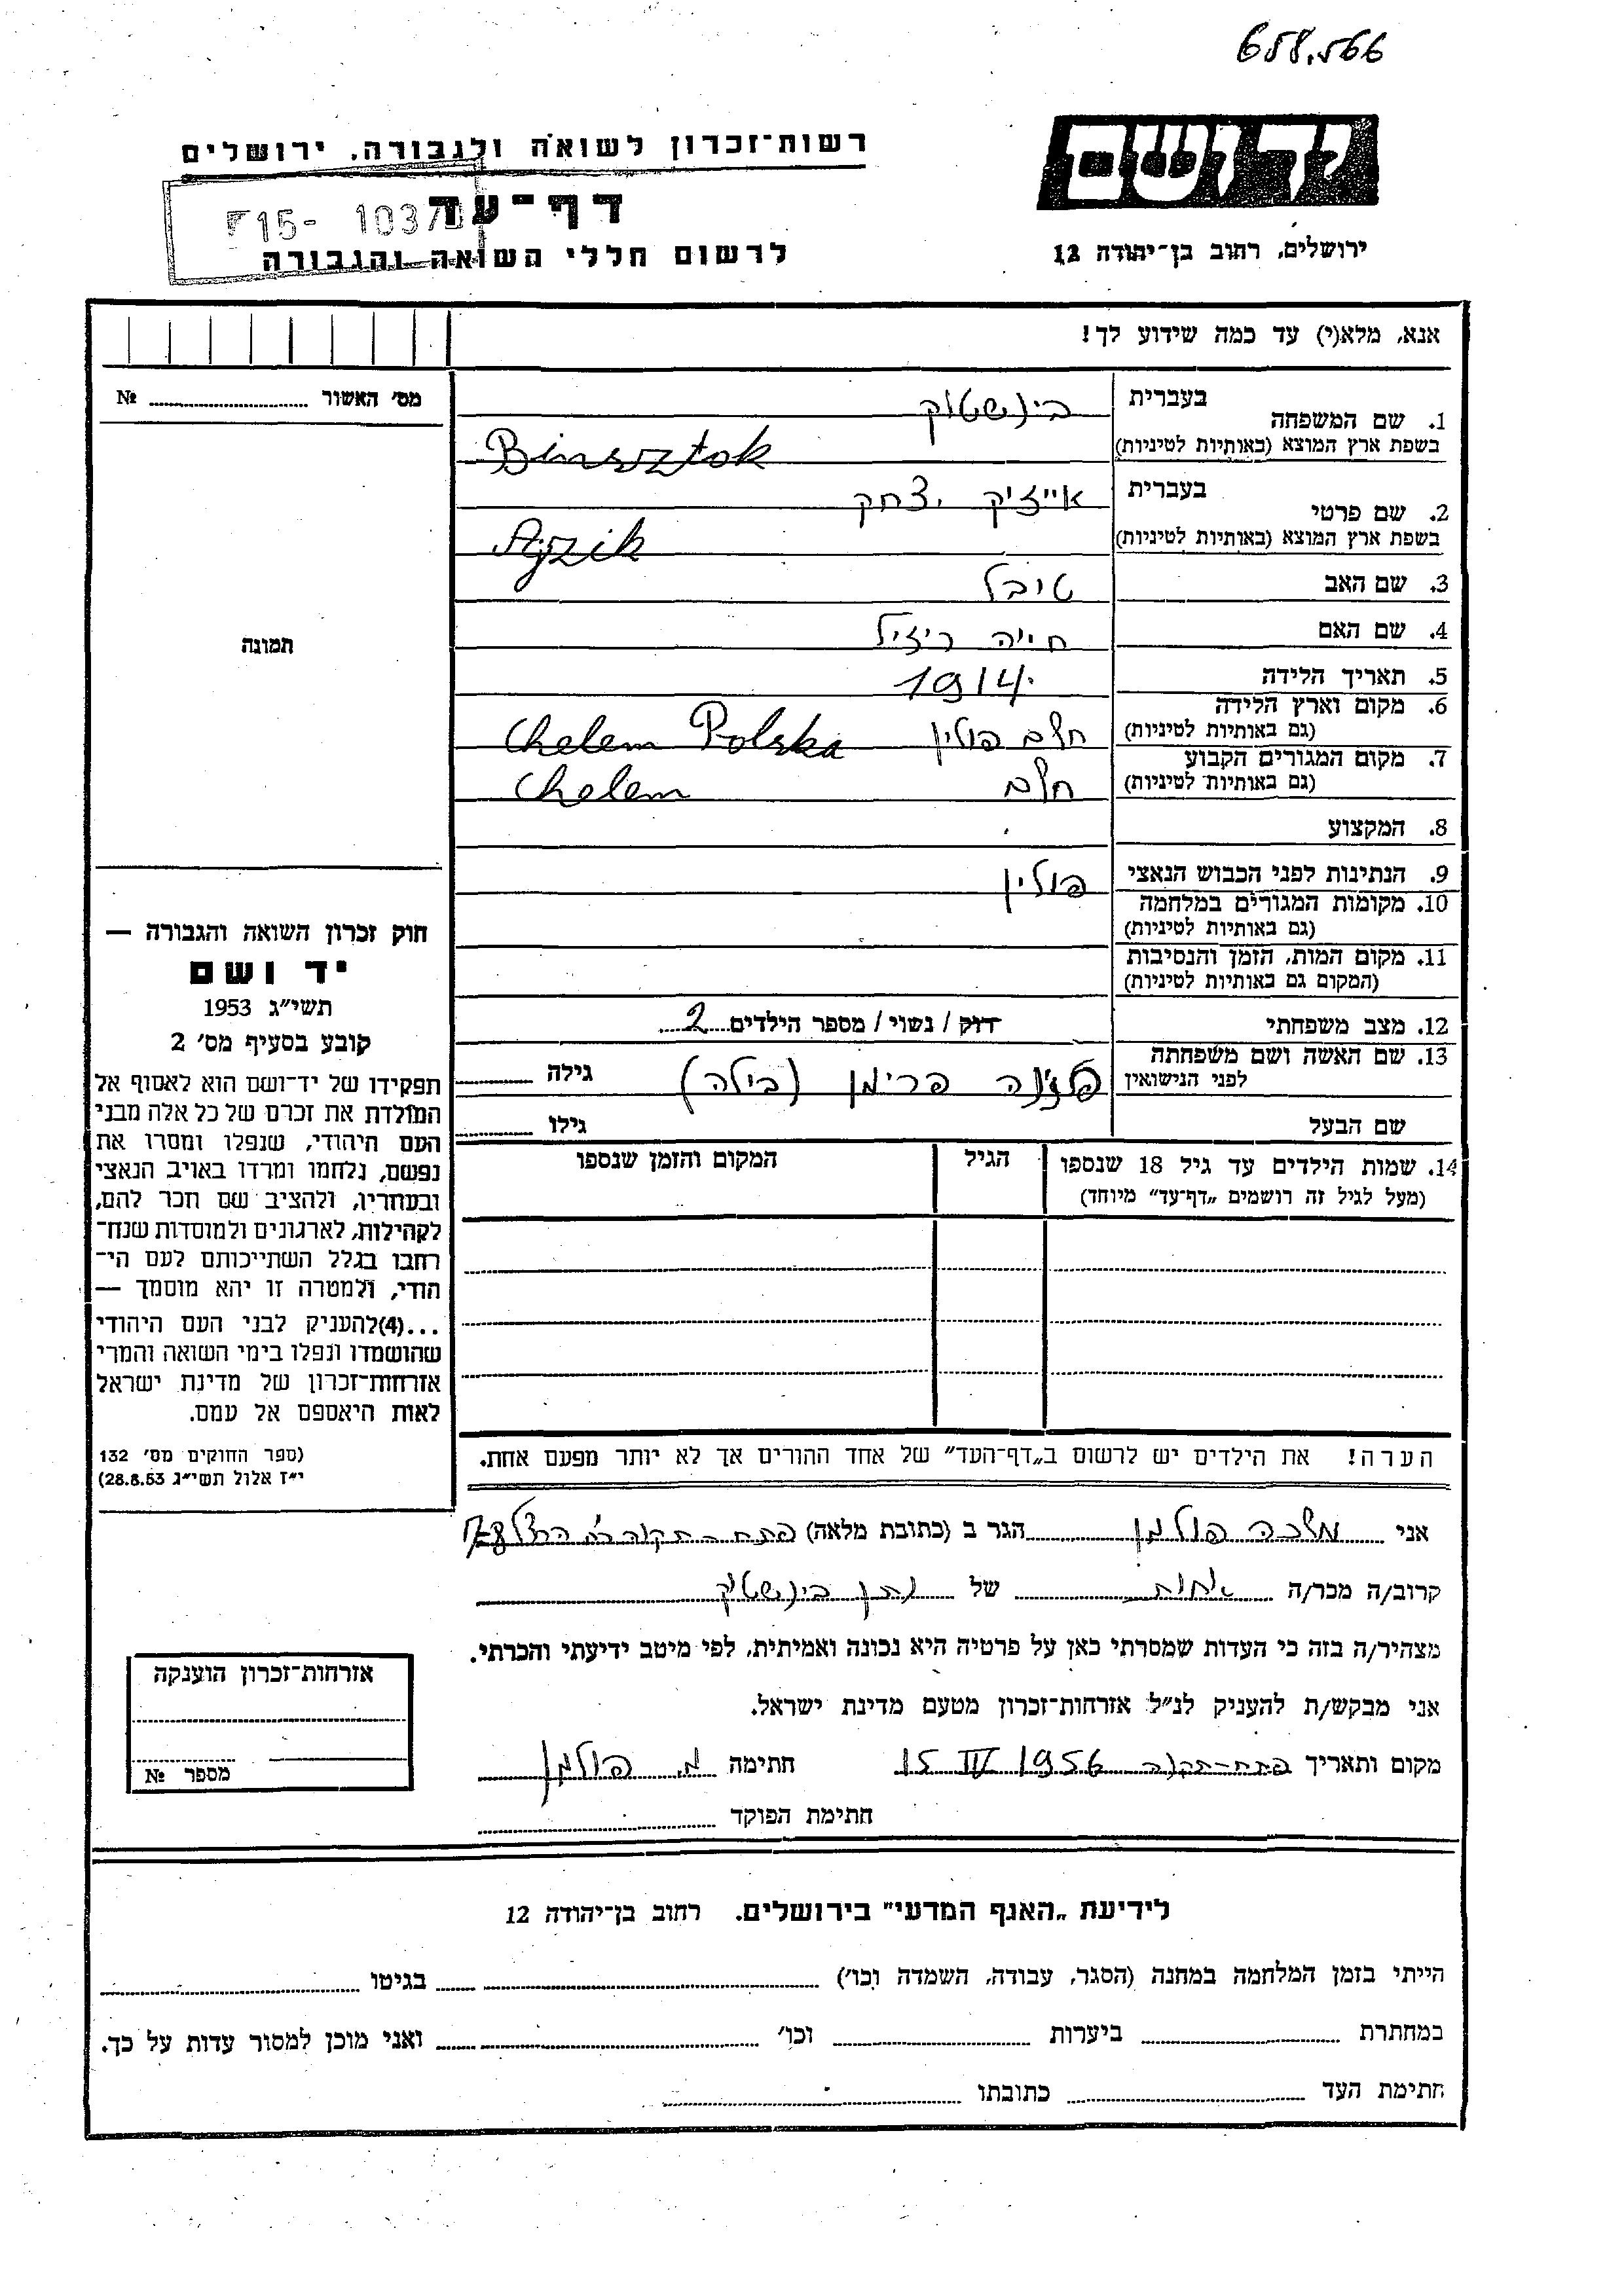 658.566
יד ושם
רשות־זכרון לשואה ולגבורה, ירושלים
דף־עד
F15- 1037
לרשום חללי השואה והגבורה
ירושלים, רחוב בן־יהודה 12
אנא, מלא(י) עד כמה שידוע לך!
מס׳ האשור № 
1. שם המשפחה בעברית בינשטוק
בשפת ארץ המוצא (באותיות לטיניות) Binsztok
2. שם פרטי בעברית אייזיק יצחק
בשפת ארץ המוצא (באותיות לטיניות) Ajzik
3. שם האב טיבל
4. שם האם חייה רייזיל
5. תאריך הלידה 1914
6. מקום וארץ הלידה
(גם באותיות לטיניות) חלם פולין Chelem Polska
7. מקום המגורים הקבוע
(גם באותיות לטיניות) חלם Chelem
8. המקצוע
9. הנתינות לפני הכבוש הנאצי פולין
10. מקומות המגורים במלחמה
(גם באותיות לטיניות)
11. מקום המות, הזמן והנסיבות
(המקום גם באותיות לטיניות)
12. מצב משפחתי רווק / נשוי / מספר הילדים 2
13. שם האשה ושם משפחתה
לפני הנישואין פרימן (בילה) גילה
שם הבעל גילו
14. שמות הילדים עד גיל 18 שנספו
(מעל לגיל זה רושמים „דף־עד” מיוחד)
הגיל
המקום והזמן שנספו
הערה! את הילדים יש לרשום ב„דף־העד” של אחד ההורים אך לא יותר מפעם אחת.
תמונה
חוק זכרון השואה והגבורה —
יד ושם
תשי״ג 1953
קובע בסעיף מס׳ 2
תפקידו של יד־ושם הוא לאסוף אל
המולדת את זכרם של כל אלה מבני
העם היהודי, שנפלו ומסרו את
נפשם, נלחמו ומרדו באויב הנאצי
ובעוזריו, ולהציב שם וזכר להם,
לקהילות, לארגונים ולמוסדות שנח־
רבו בגלל השתייכותם לעם הי־
הודי, ולמטרה זו יהא מוסמך —
...(4) להעניק לבני העם היהודי
שהושמדו ונפלו בימי השואה והמרי
אזרחות־זכרון של מדינת ישראל
לאות היאספם אל עמם.
(ספר החוקים מס׳ 132
י״ז אלול תשי״ג 28.8.53)
אני מלכה פולמן הגר ב (כתובת מלאה) פתח־תקוה
קרוב/ה מכר/ה אחות של נתן בינשטוק
מצהיר/ה בזה כי העדות שמסרתי כאן על פרטיה היא נכונה ואמיתית, לפי מיטב ידיעתי והכרתי.
אני מבקש/ת להעניק לנ״ל אזרחות־זכרון מטעם מדינת ישראל.
מקום ותאריך פתח־תקוה 15 IV 1956 חתימה מ. פולמן
חתימת הפוקד
אזרחות־זכרון הוענקה
מספר №
לידיעת „האגף המדעי” בירושלים. רחוב בן־יהודה 12
הייתי בזמן המלחמה במחנה (הסגר, עבודה, השמדה וכו׳) בגיטו
במחתרת ביערות וכו׳ ואני מוכן למסור עדות על כך.
חתימת העד כתובתו